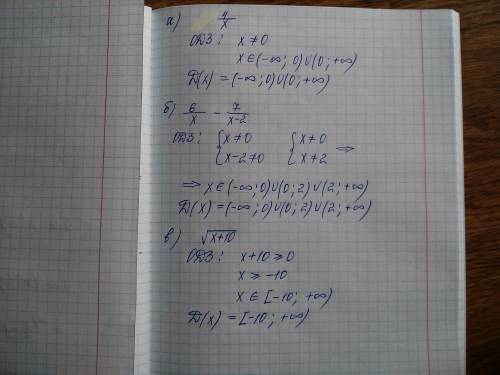 а) 4/x
ОДЗ: x≠0
x∈(-∞; 0)∪(0; +∞)
D(x) = (-∞; 0)∪(0; +∞)
б) 6/x - 7/(x-2)
ОДЗ: {x≠0 {x≠0
{x-2≠0 {x≠2 ⇒
⇒ x∈(-∞; 0)∪(0; 2)∪(2; +∞)
D(x) = (-∞; 0)∪(0; 2)∪(2; +∞)
в) √(x+10)
ОДЗ: x+10⩾0
x⩾-10
x∈[-10; +∞)
D(x) = [-10; +∞)